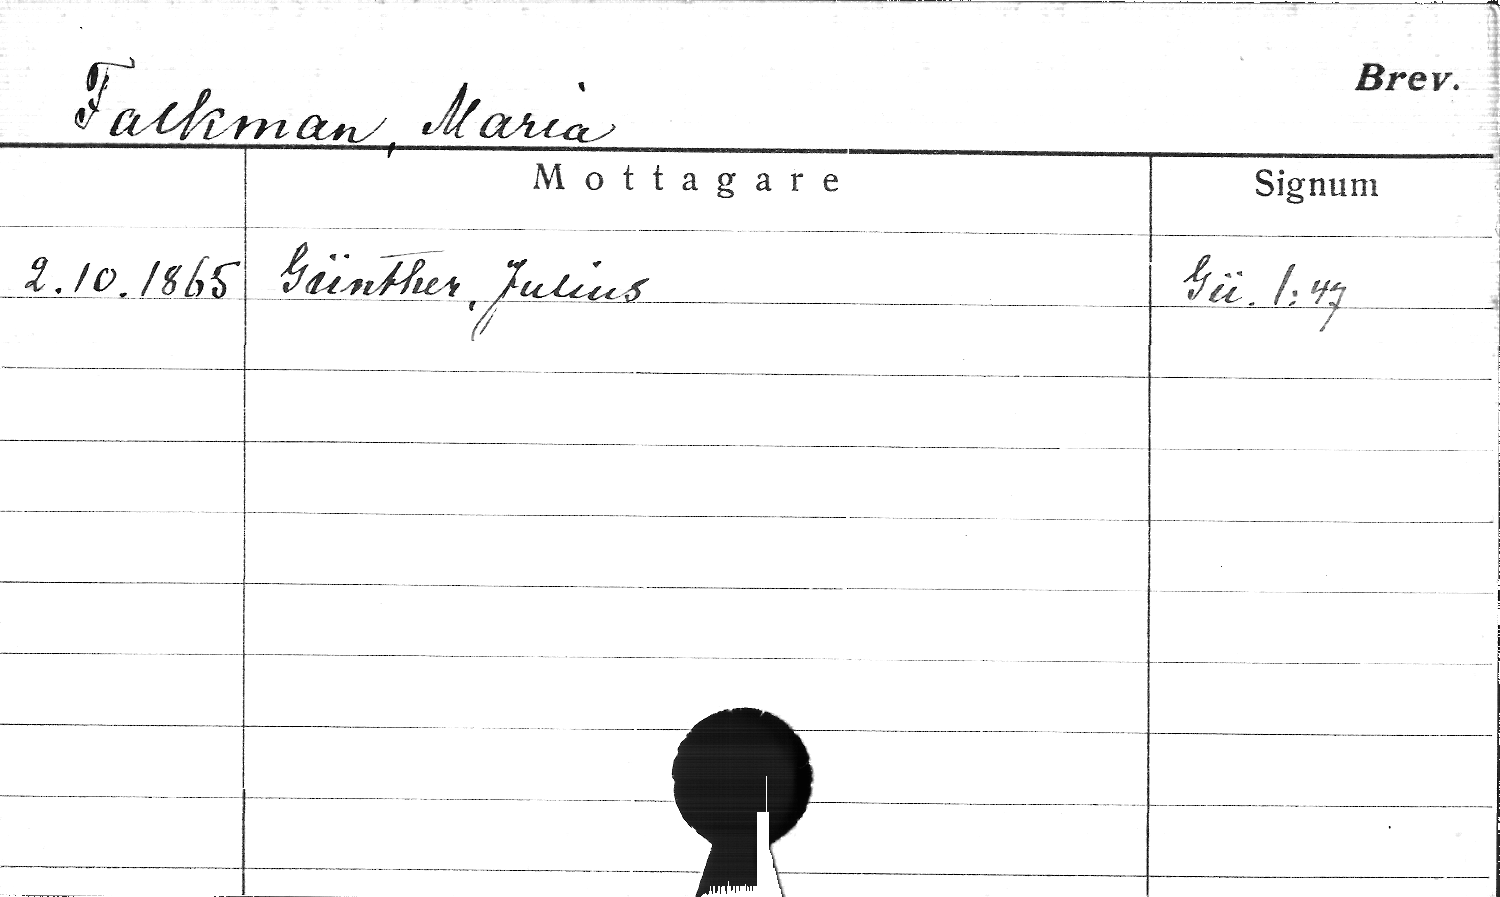 Brev.
Falkman, Maria
Mottagare Signum
2.10.1865 Günther, Julius Gü. 1:47